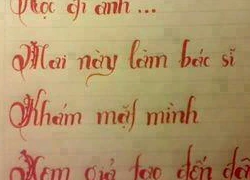 Học đi anh ...
Mai này làm bác sĩ
Khám mắt mình
Xem quả tao đến đâu